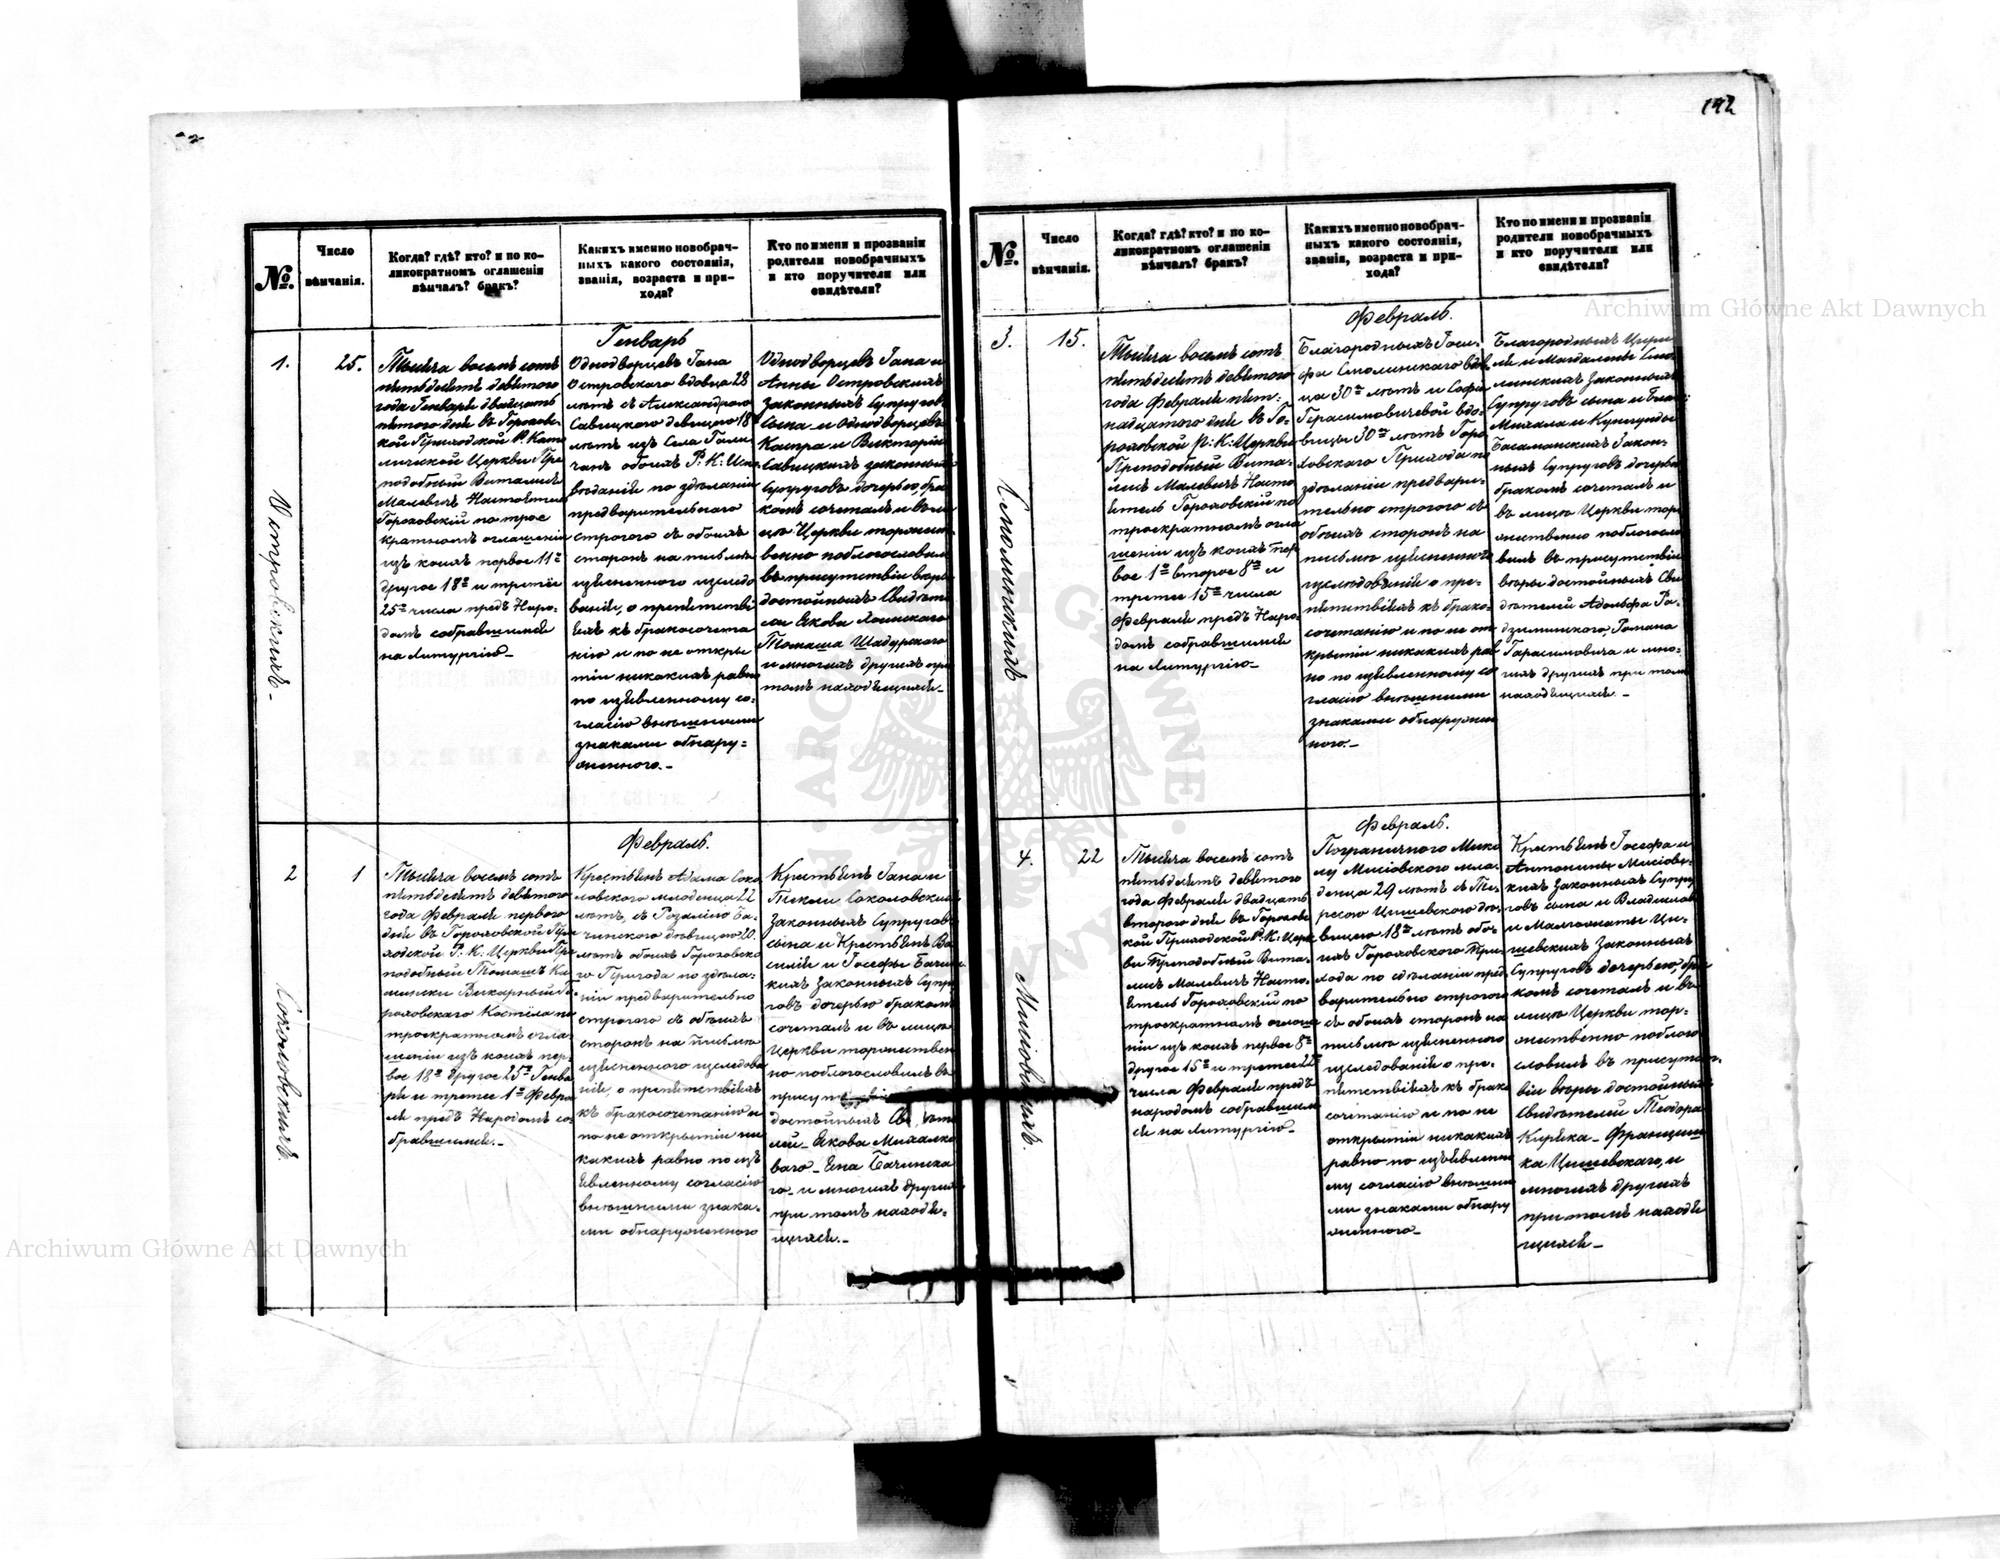 142
№.
Число
вѣнчанія.
Когда? гдѣ? кто? и по ко-
ликократномъ оглашеніи
вѣнчалъ? бракъ?
Какихъ именно новобрач-
ныхъ какого состоянія,
званія, возраста и при-
хода?
Кто по имени и прозванію
родители новобрачныхъ
и кто поручители или
свидѣтели?
1.
25.
Островскихъ.
Тысяча восемь сотъ
пятьдесятъ девятого
года Генваря двадцать
пятого дня въ Горохов-
ской Приходской Р. Като
лической Церкви Пре
подобный Виталисъ
Малевичъ Настоятель
Гороховскій по трое
кратномъ оглашеніи
изъ коихъ первое 11го
другое 18го и третіе
25го числа предъ Наро-
домъ собравшимся
на Литургію
Генварь
Однодворцевъ Іана
Островскаго вдовца 28
лѣтъ съ Александрою
Савицкою девицею 18
лѣтъ изъ Села
обоихъ Р. К. Испо
вѣданія по здѣланіи
предварительнаго
строгого съ обоихъ
сторонъ на письмѣ
изъясненного изслѣдо
ванія, о препятстві
яхъ къ бракосочета
нію и по не откры
тіи никакихъ равно
по изъявленному со-
гласію внѣшними
знаками обнару-
женного.
Однодворцевъ Іана и
Анны Островскихъ
законныхъ Супруговъ
сына и Однодворцевъ
Каспра и Викторіи
Савицкихъ законныхъ
Супруговъ дочерью, бра
комъ сочеталъ и въ ли
цѣ Церкви торжест
венно поблагословилъ
въ присутствіи вѣры
достойныхъ Свидѣте
ли Якова
Томаша Шадурского
и многихъ другихъ при
томъ находящихся
2
1
Соколовскихъ.
Тысяча восемь сотъ
пятьдесятъ девятого
года Февраля первого
дня въ Гороховской При
ходской Р. К. Церкви Пре
подобный Томашъ Ка
мински Викарный Го
роховскаго Костела по
троекратномъ огла
шеніи изъ коихъ пер-
вое 18го другое 25го Генва
ря и третее 1го Февра
ля предъ Народомъ со
бравшимся.
Февраль.
Крестьянъ Адама Соко
ловского молоденца 22
лѣтъ, съ Розаліею Ба-
чинского дѣвицею 20
лѣтъ обоихъ Гороховско
го Прихода по здѣла-
ніи предварительно
строгого съ обоихъ
сторонъ на письмѣ
изъясненного изслѣдова
нія, о препятствіяхъ
къ бракосочетанію и
по не открытіи ни
какихъ равно по изъ
явленному согласію
внѣшними знака-
ми обнаруженного
Крестьянъ Іана и
Теклѣ Соколовскихъ
законныхъ Супруговъ
сына и Крестьянъ Ва
силія и Іосефы Бачин
кихъ Законныхъ Супру
говъ дочерью бракомъ
сочеталъ и въ лицѣ
Церкви торжествен
но поблагословилъ въ
достойныхъ
лей Якова Михалко
ваго Яна Бачинска
го и многихъ другихъ
при томъ находя-
щихся.
№.
Число
вѣнчанія.
Когда? гдѣ? кто? и по ко-
ликократномъ оглашеніи
вѣнчалъ? бракъ?
Какихъ именно новобрач-
ныхъ какого состоянія,
званія, возраста и при-
хода?
Кто по имени и прозванію
родители новобрачныхъ
и кто поручители или
свидѣтели?
3.
15.
Смолинскихъ
Тысяча восемь сотъ
пятьдесятъ девятого
года Февраля пят-
надцатого дня въ Го-
роховской Р. К. Церкви
Преподобный Вита-
лисъ Малевичъ Насто
ятель Гороховскій по
троекратномъ огла
шеніи изъ коихъ пер
вое 1го второе 8го и
третее 15го числа
Февраля предъ Наро
домъ собравшимся
на Литургію
Февраль.
Благородныхъ Іосе-
фа Смолинскаго вдов
ца 30ти лѣтъ и Софіи
Герасимовичевой вдо-
вицы 30ти лѣтъ Горо
ховскаго Прихода по
здѣланіи предвари-
тельно строгого съ
обоихъ сторонъ на
письмѣ изъясненного
изслѣдованія о пре-
пятствіяхъ къ брако-
сочетанію и по не от
крытіи никакихъ рав
но по изъявленному со
гласію внѣшними
знаками обнаружен
ного.
Благородныхъ
и Магдалены Смо
линскихъ Законныхъ
Супруговъ сына и
Михала и Кунегунды
Закон-
ныхъ Супруговъ дочерью
бракомъ сочеталъ и
въ лицѣ Церкви тор
жественно поблагосло
вилъ въ присутствіи
вѣры достойныхъ Сви
дѣтелей Адольфа Ра-
дзиминского, Романа
Гарасимовича и мно-
гихъ другихъ при томъ
находящихся.
4.
22
Мисіовскихъ.
Тысяча восемь сотъ
пятьдесятъ девятого
года Февраля двадцать
второго дня въ Горохов
ской Приходской Р. К. Церк
ви Преподобный Вита-
лисъ Малевичъ Насто-
ятель Гороховскій по
троекратномъ оглаше
ніи изъ коихъ первое 8го
другое 15го и третее 22го
числа Февраля предъ
народомъ собравшим
ся на Литургію
Февраль.
Пограничного Мико
лу Мисіовского мла-
денца 29 лѣтъ съ Те-
ресою Цишевского дѣ-
вицею 18 лѣтъ обо-
ихъ Гороховского При-
хода по сдѣланіи пред
варительно строгого
съ обоихъ сторонъ на
письмѣ изъясненного
изслѣдованія о пре-
пятствіяхъ къ брако
сочетанію и по не
открытіи никакихъ
равно по изъявленно
му согласію внѣшни
ми знаками обнару
женного
Крестьянъ Іосефа и
Антонины Мисіовс-
кихъ Законныхъ Супру
говъ сына и Владислава
и Малгожаты Ци-
шевскихъ Законныхъ
Супруговъ дочерью, бра
комъ сочеталъ и въ
лицѣ Церкви тор-
жественно поблаго
словилъ въ присутст-
віи вѣры достойныхъ
Свидѣтелей Теодора
Киряка Францишка
ка Цишевскаго, и
многихъ другихъ
при томъ находя
щихся
Archiwum Główne Akt Dawnych
Archiwum Główne Akt Dawnych